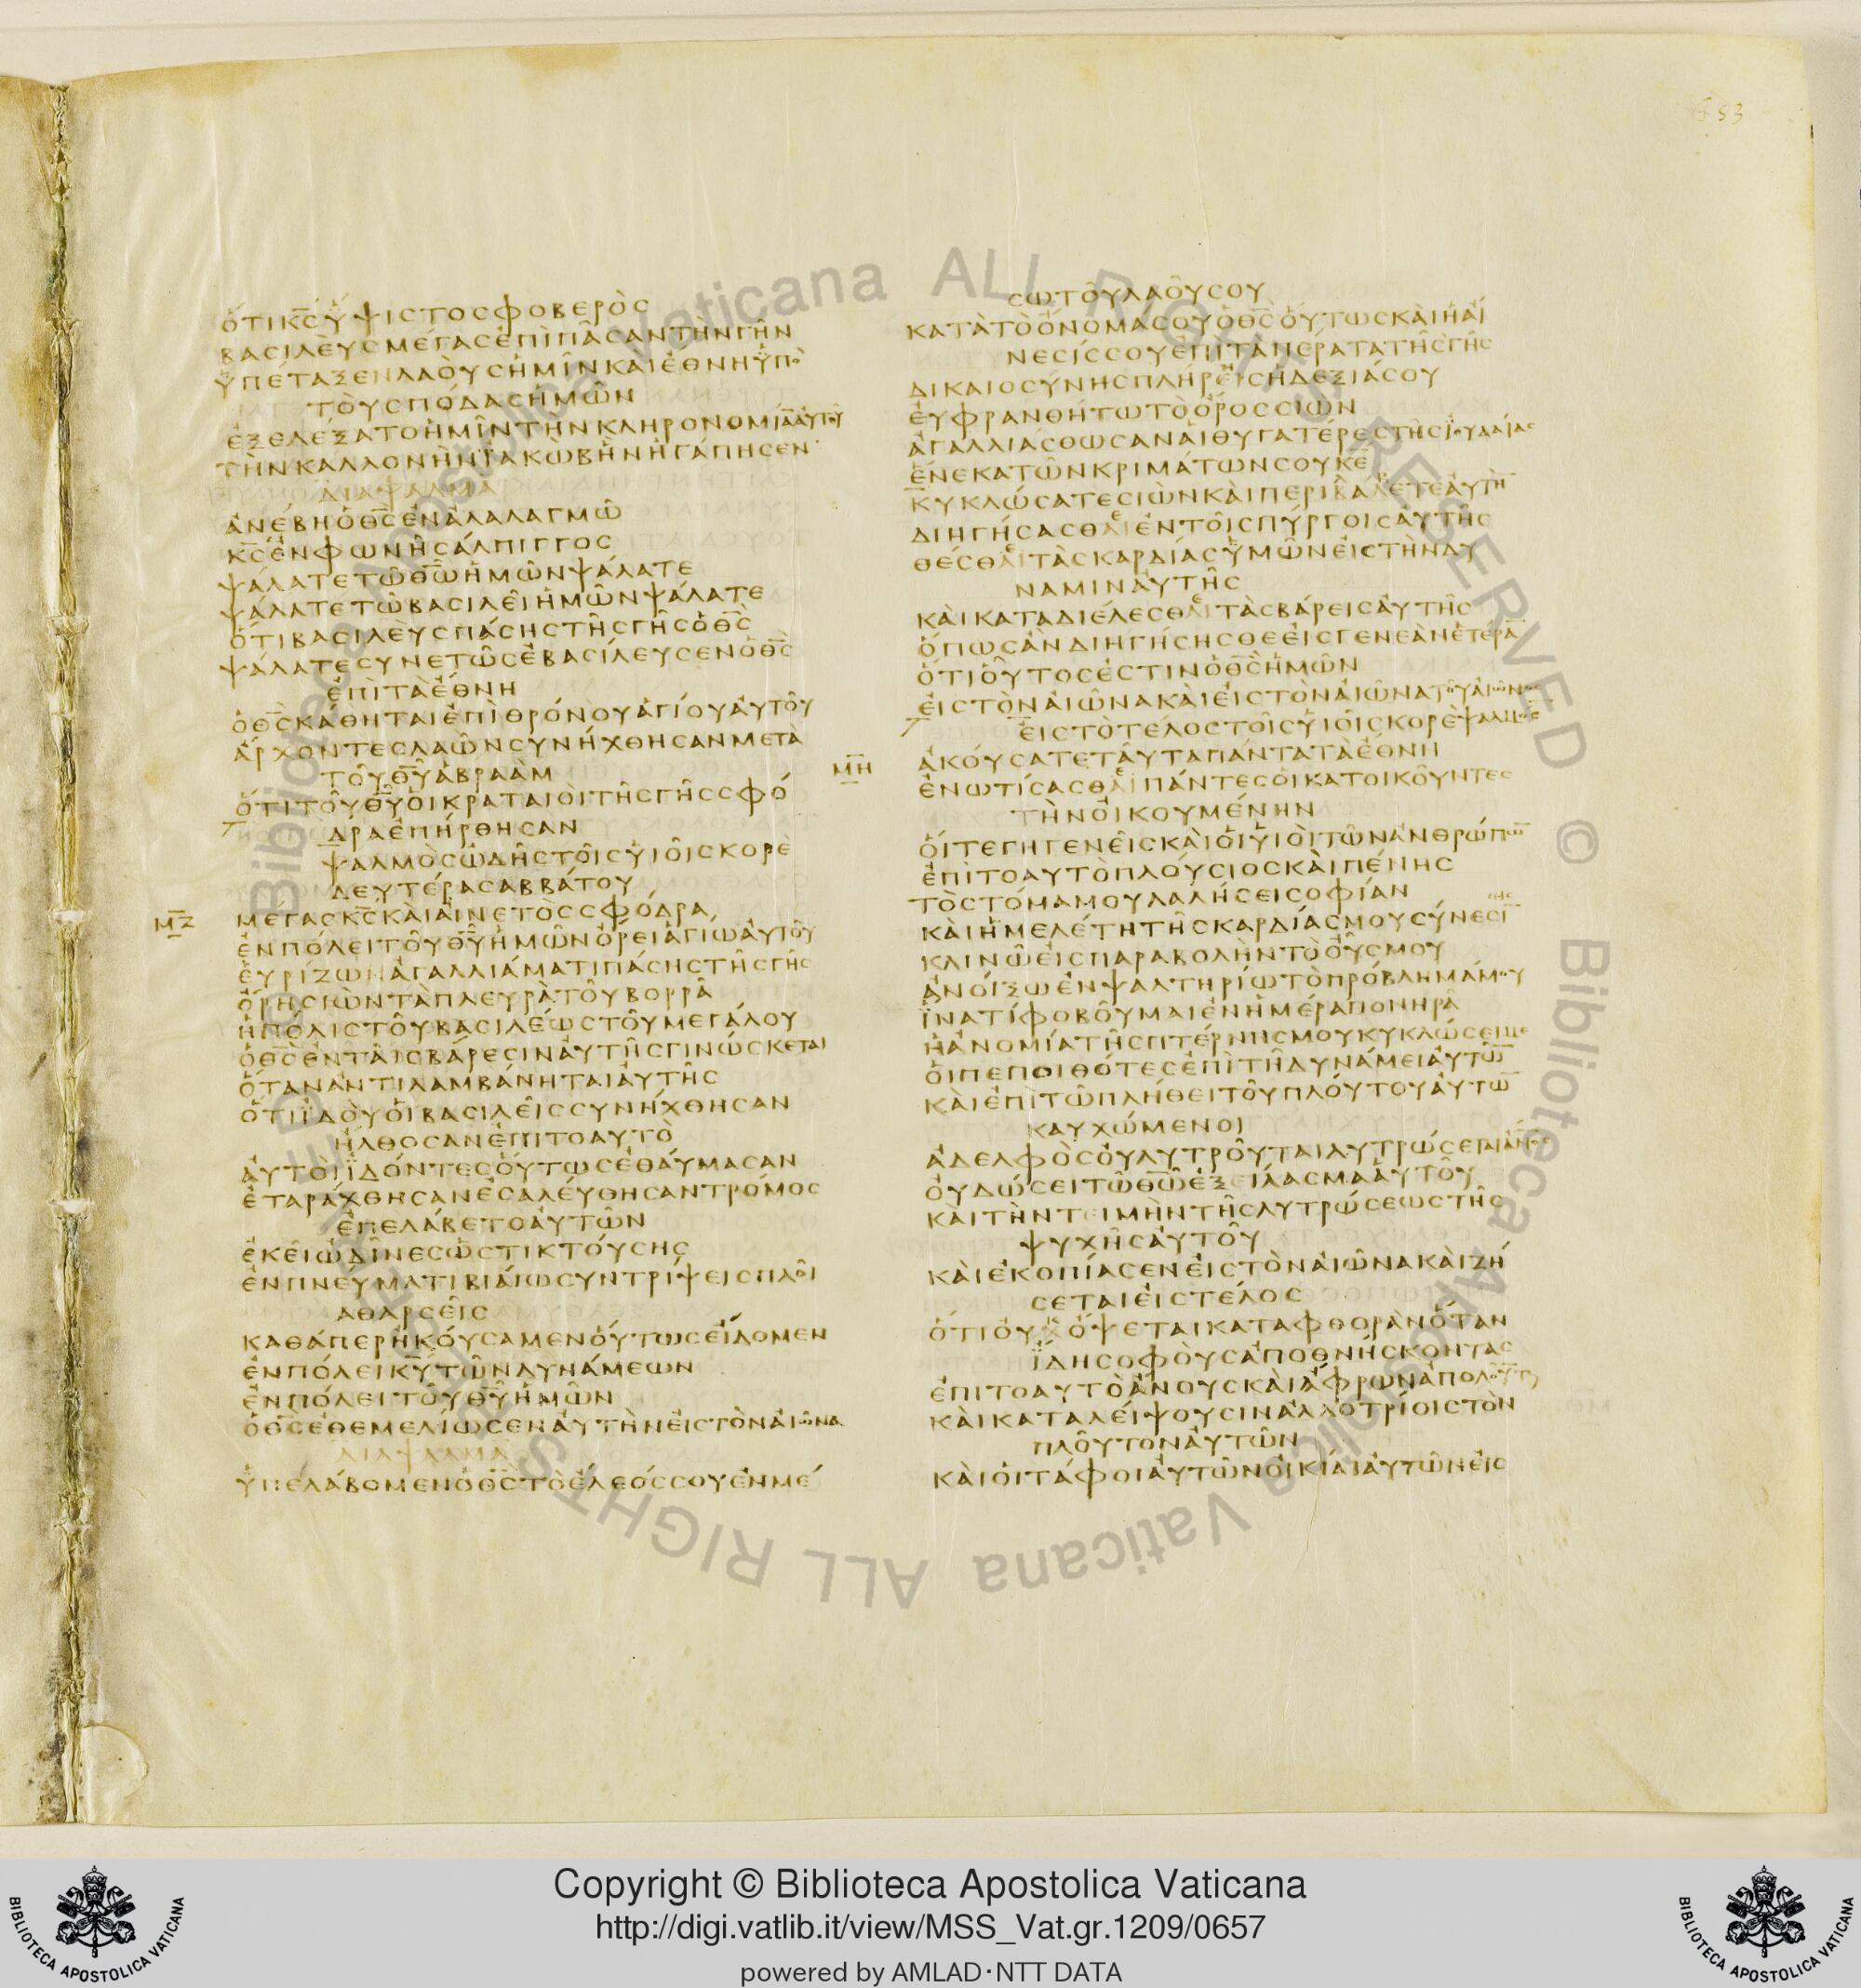 653
ὅτι κ̅ς̅ ὕψιστος φοβερὸς
βασιλεὺς μέγας ἐπὶ πᾶσαν τὴν γῆν
ὑπέταξεν λαοὺς ἡμῖν καὶ ἔθνη ὑπὸ
τοὺς πόδας ἡμῶν
ἐξελέξατο ἡμῖν τὴν κληρονομία̅ αὐτοῦ
τὴν καλλονὴν ϊακὼβ ἣν ἠγάπησεν
διαψαλμα
ἀνέβη ὁ θ̅ς̅ ἐν ἀλαλαγμῶ
κ̅ς̅ ἐν φωνῆ σάλπιγγος
ψάλατε τῶ θ̅ω̅ ἡμῶν ψάλατε
ψάλατε τῶ βασιλεῖ ἡμῶν ψάλατε
ὅτι βασιλεὺς πάσης τῆς γῆς ὁ θ̅ς̅
ψάλατε συνετῶς ἐβασίλευσεν ὁ θ̅ς̅
ἐπὶ τὰ ἔθνη
ὁ θ̅ς̅ κάθηται ἐπὶ θρόνου ἁγίου αὐτοῦ
ἄρχοντες λαῶν συνήχθησαν μετὰ
τοῦ θ̅υ̅ ἀβραὰμ
ὅτι τοῦ θ̅υ̅ οἱ κραταιοὶ τῆς γῆς σφό
δρα ἐπήρθησαν
ψαλμὸς ὠδῆς τοῖς υἱοῖς κορὲ
δευτέρα σαββάτου
μ̅ζ̅ μέγας κ̅ς̅ καὶ αἰνετὸς σφόδρα
ἐν πόλει τοῦ θ̅υ̅ ἡμῶν ὄρει ἁγίω αὐτοῦ
εὐρίζων ἀγαλλιάματι πάσης τῆς γῆς
ὄρη σιὼν τὰ πλευρὰ τοῦ βορρᾶ
ἡ πόλις τοῦ βασιλέως τοῦ μεγάλου
ὁ θ̅ς̅ ἐν ταῖς βάρεσιν αὐτῆς γινώσκεται
ὅταν ἀντιλαμβάνηται αὐτῆς
ὅτι ϊδοὺ οἱ βασιλεῖς συνήχθησαν
ἤλθοσαν ἐπιτοαυτὸ
αὐτοὶ ϊδόντες οὕτως ἐθαύμασαν
ἐταράχθησαν ἐσαλεύθησαν τρόμος
ἐπελάβετο αὐτῶν
ἐκεῖ ὠδῖνες ὡς τικτούσης
ἐν πνεύματι βιαίω συντρίψεις πλοῖ
α θαρσεῖς
καθάπερ ἠκούσαμεν οὕτως εἴδομεν
ἐν πόλει κ̅υ̅ τῶν δυνάμεων
ἐν πόλει τοῦ θ̅υ̅ ἡμῶν
ὁ θ̅ς̅ ἐθεμελίωσεν αὐτὴν εἰς τὸν αἰῶνα
διαψαλμα
ὑπελάβομεν ὁ θ̅ς̅ τὸ ἔλεός σου ἐν μέ
σω τοῦ λαοῦ σου
κατὰ τὸ ὄνομά σου ὁ θ̅ς̅ οὕτως καὶ ἡ αἴ
νεσίς σου ἐπὶ τὰ πέρατα τῆς γῆς
δικαιοσύνης πλήρεις ἡ δεξιά σου
εὐφρανθήτω τὸ ὄρος σιὼν
ἀγαλλιάσθωσαν αἱ θυγατέρες τῆς ϊουδαίας
ἕνεκα τῶν κριμάτων σου κ̅ε̅
κυκλώσατε σιὼν καὶ περιλάβετε αὐτὴ̅
διηγήσασθαι ἐν τοῖς πύργοις αὐτῆς
θέσθαι τὰς καρδίας ὑμῶν εἰς τὴν δύ
ναμιν αὐτῆς
καὶ καταδιέλεσθαι τὰς βάρεις αὐτῆς
ὅπως ἂν διηγήσησθε εἰς γενεὰν ἑτέρα̅
ὅτι οὗτός ἐστιν ὁ θ̅ς̅ ἡμῶν
εἰς τὸν αἰῶνα καὶ εἰς τὸν αἰῶνα τοῦ αἰῶνος
εἰς τὸ τέλος τοῖς υἱοῖς κορὲ ψαλμός
μ̅η̅ ἀκούσατε ταῦτα πάντα τὰ ἔθνη
ἐνωτίσασθαι πάντες οἱ κατοικοῦντες
τὴν οἰκουμένην
οἵ τε γηγενεῖς καὶ οἱ υἱοὶ τῶν ἀνθρώπω̅
ἐπιτοαυτὸ πλούσιος καὶ πένης
τὸ στόμα μου λαλήσει σοφίαν
καὶ ἡ μελέτη τῆς καρδίας μου σύνεσι̅
κλινῶ εἰς παραβολὴν τὸ οὖς μου
ἀνοίξω ἐν ψαλτηρίω τὸ πρόβλημά μου
ϊνατί φοβοῦμαι ἐν ἡμέρα πονηρᾶ
ἡ ἀνομία τῆς πτέρνης μου κυκλώσει με
οἱ πεποιθότες ἐπὶ τῆ δυνάμει αὐτῶ̅
καὶ ἐπὶ τῶ πλήθει τοῦ πλούτου αὐτῶ̅
καυχώμενοι
ἀδελφὸς οὐ λυτροῦται λυτρώσεται ἄν̅ο̅ς̅
οὐ δώσει τῶ θ̅ω̅ ἐξείλασμα αὐτοῦ
καὶ τὴν τειμὴν τῆς λυτρώσεως τῆς
ψυχῆς αὐτοῦ
καὶ ἐκοπίασεν εἰς τὸν αἰῶνα καὶ ζή
σεται εἰς τέλος
ὅτι οὐχ ὄψεται καταφθορὰν ὅταν
ϊδη σοφοὺς ἀποθνήσκοντας
ἐπιτοαυτὸ ἄνους καὶ ἄφρων ἀπολοῦ̅τ
καὶ καταλείψουσιν ἀλλοτρίοις τὸν
πλοῦτον αὐτῶν
καὶ οἱ τάφοι αὐτῶν οἰκίαι αὐτῶν εἰς
Copyright © Biblioteca Apostolica Vaticana
http://digi.vatlib.it/view/MSS_Vat.gr.1209/0657
powered by AMLAD·NTT DATA
BIBLIOTECA APOSTOLICA VATICANA
BIBLIOTECA APOSTOLICA VATICANA